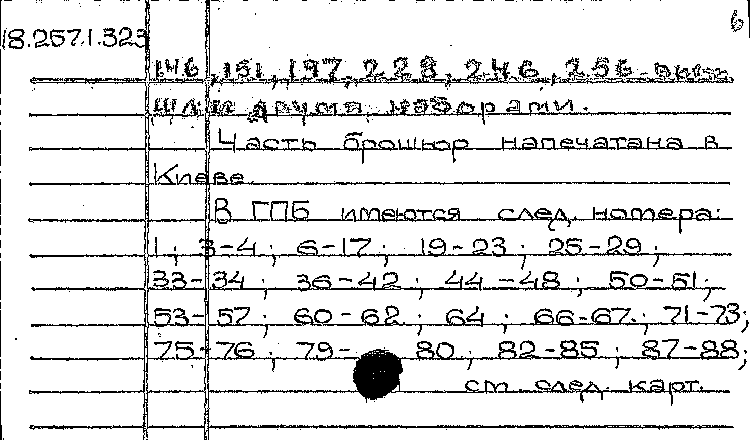 6
18.257.1.323
146, 151, 197, 228, 246, 256 вы-
шли двумя наборами.
Часть брошюр напечатана в
Киеве.
В ГПБ имеются след. номера:
1; 3-4; 6-17; 19-23; 25-29;
33-34; 36-42; 44-48; 50-51;
53-57; 60-62; 64; 66-67; 71-73;
75-76; 79-80; 82-85; 87-88;
см. след. карт.